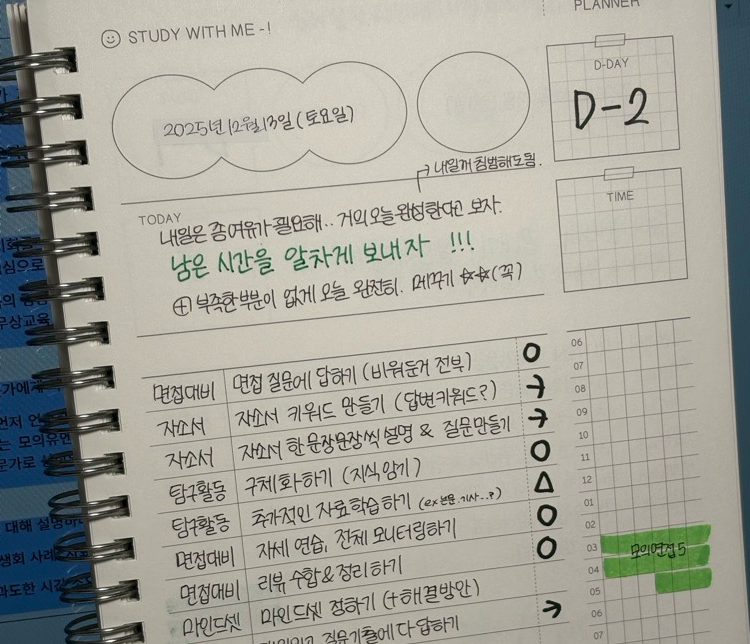 PLANNER
STUDY WITH ME -!
D-DAY
D-2
2025년 12월 13일 (토요일)
내일까 침범해도됨.
TIME
TODAY
내일은 좀 여유가 필요해.. 거의 오늘 완성한다고 보자.
남은 시간을 알차게 보내자 !!!
⊕ 부족한 부분이 없게 오늘 완전히. 메꾸기 ☆☆(꼭)
면접대비 면접 질문에 답하기 (비워둔거 전부) O
자소서 자소서 키워드 만들기 (답변키워드?) →
자소서 자소서 한문장문장씩 설명 & 질문만들기 →
탐구활동 구체화하기 (지식암기) O
탐구활동 추가적인 자료학습하기 (ex논문.기사..?) △
면접대비 자세 연습, 전체 모니터링하기 O
면접대비 리뷰 수합&정리하기 O
마인드셋 마인드셋 정하기 (+해결방안) →
06
07
08
09
10
11
12
01
02
03
모의면접5
04
05
06
07
무상교육
가에게
먼저
는 모의유엔
대해 설명하
생회 사례
과도한 시간